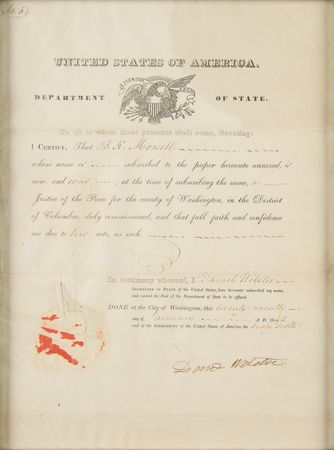 No. 64
UNITED STATES OF AMERICA.
DEPARTMENT OF STATE.
To all to whom these presents shall come, Greeting:
I CERTIFY, That B. K. Morsell
whose name is subscribed to the paper hereunto annexed, is
now, and was, at the time of subscribing the same, a
Justice of the Peace for the county of Washington, in the District
of Columbia, duly commissioned, and that full faith and confidence
are due to his acts, as such
In testimony whereof, I Daniel Webster
SECRETARY OF STATE of the United States, have hereunto subscribed my name,
and caused the Seal of the Department of State to be affixed
DONE at the City of Washington, this twenty seventh
day of January A. D. 1842
and of the Independence of the United States of America the sixty sixth
Danl Webster